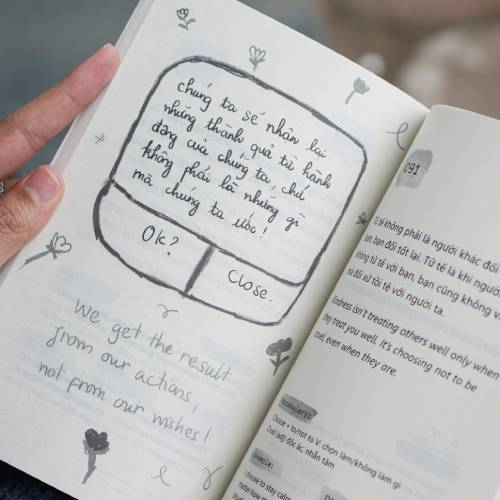 chúng ta sẽ nhận lại
những thành quả từ hành
động của chúng ta, chứ
không phải là những gì
mà chúng ta ước!
Ok?
Close.
We get the result
from our actions,
not from our wishes!
091
Tử tế không phải là người khác đối
bạn, bạn đối tốt lại. Tử tế là khi người
không tử tế với bạn, bạn cũng không
mà đối xử tồi tệ với người ta.
Kindness isn't treating others well only when
they treat you well. It's choosing not to be
cruel, even when they are.
Vocabulary:
Choose + to/not to V: chọn làm/không làm gì
Cruel (adj) độc ác, nhẫn tâm
Example:
I choose to stay calm
matter how